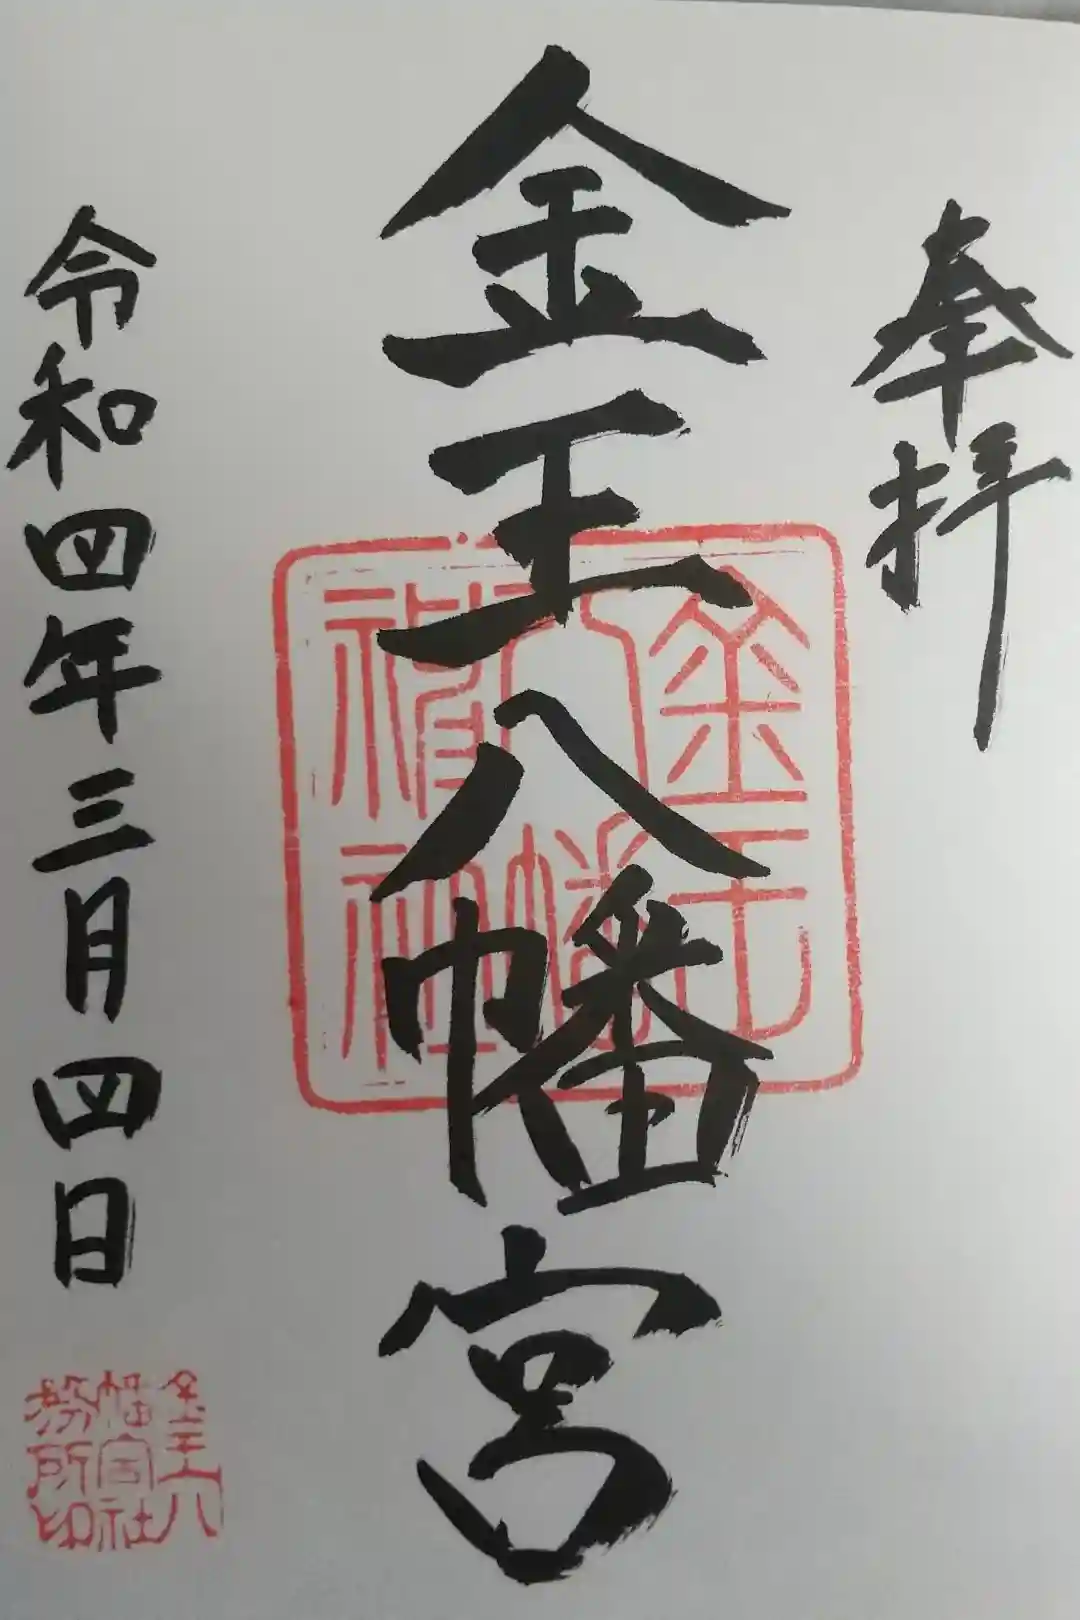 奉拝
金王八幡宮
金王八幡神社
令和四年三月四日
金王八幡宮社務所印